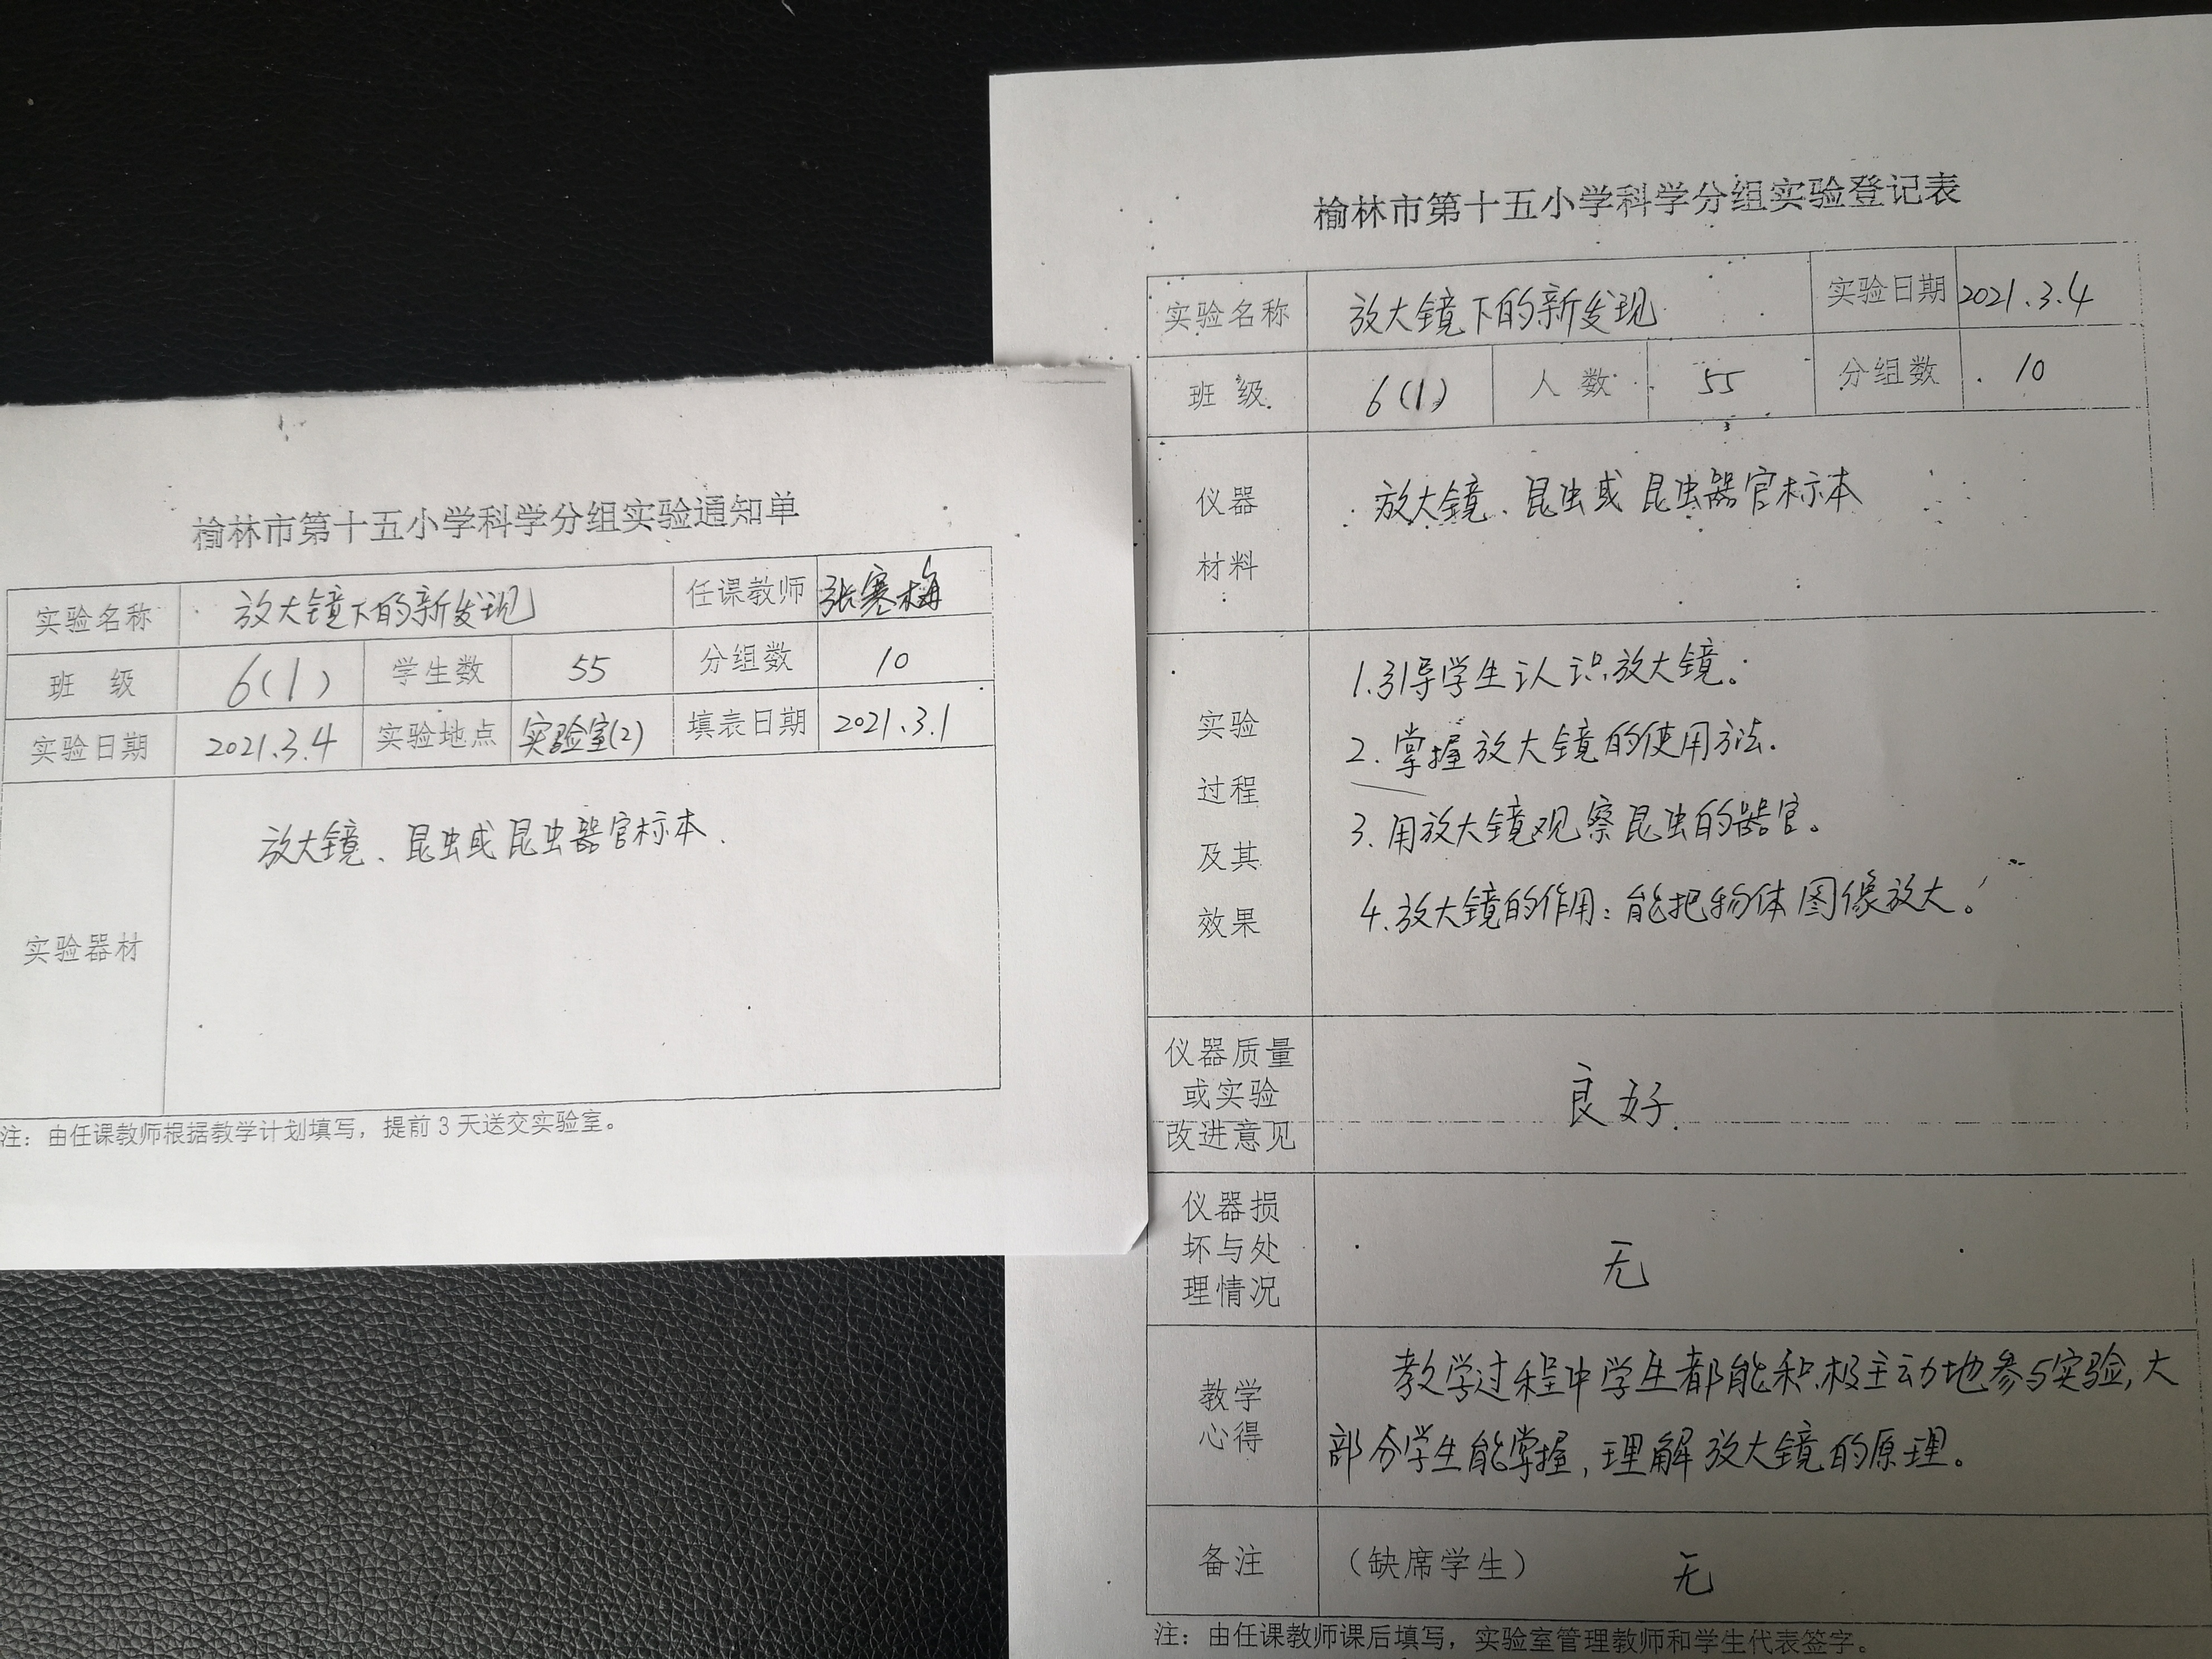 榆林市第十五小学科学分组实验通知单
实验名称 放大镜下的新发现 任课教师 张寒梅
班 级 6(1) 学生数 55 分组数 10
实验日期 2021.3.4 实验地点 实验室(2) 填表日期 2021.3.1
实验器材 放大镜、昆虫或昆虫器官标本.
注：由任课教师根据教学计划填写，提前3天送交实验室。
榆林市第十五小学科学分组实验登记表
实验名称 放大镜下的新发现 实验日期 2021.3.4
班 级 6(1) 人数 55 分组数 10
仪器
材料
放大镜、昆虫或昆虫器官标本
实验
过程
及其
效果
1.引导学生认识放大镜。
2.掌握放大镜的使用方法.
3.用放大镜观察昆虫的器官。
4.放大镜的作用：能把物体图像放大。
仪器质量
或实验
改进意见
良好.
仪器损
坏与处
理情况
无
教学
心得
教学过程中学生都能积极主动地参与实验,大
部分学生能掌握,理解放大镜的原理。
备注 （缺席学生） 无
注：由任课教师课后填写，实验室管理教师和学生代表签字。